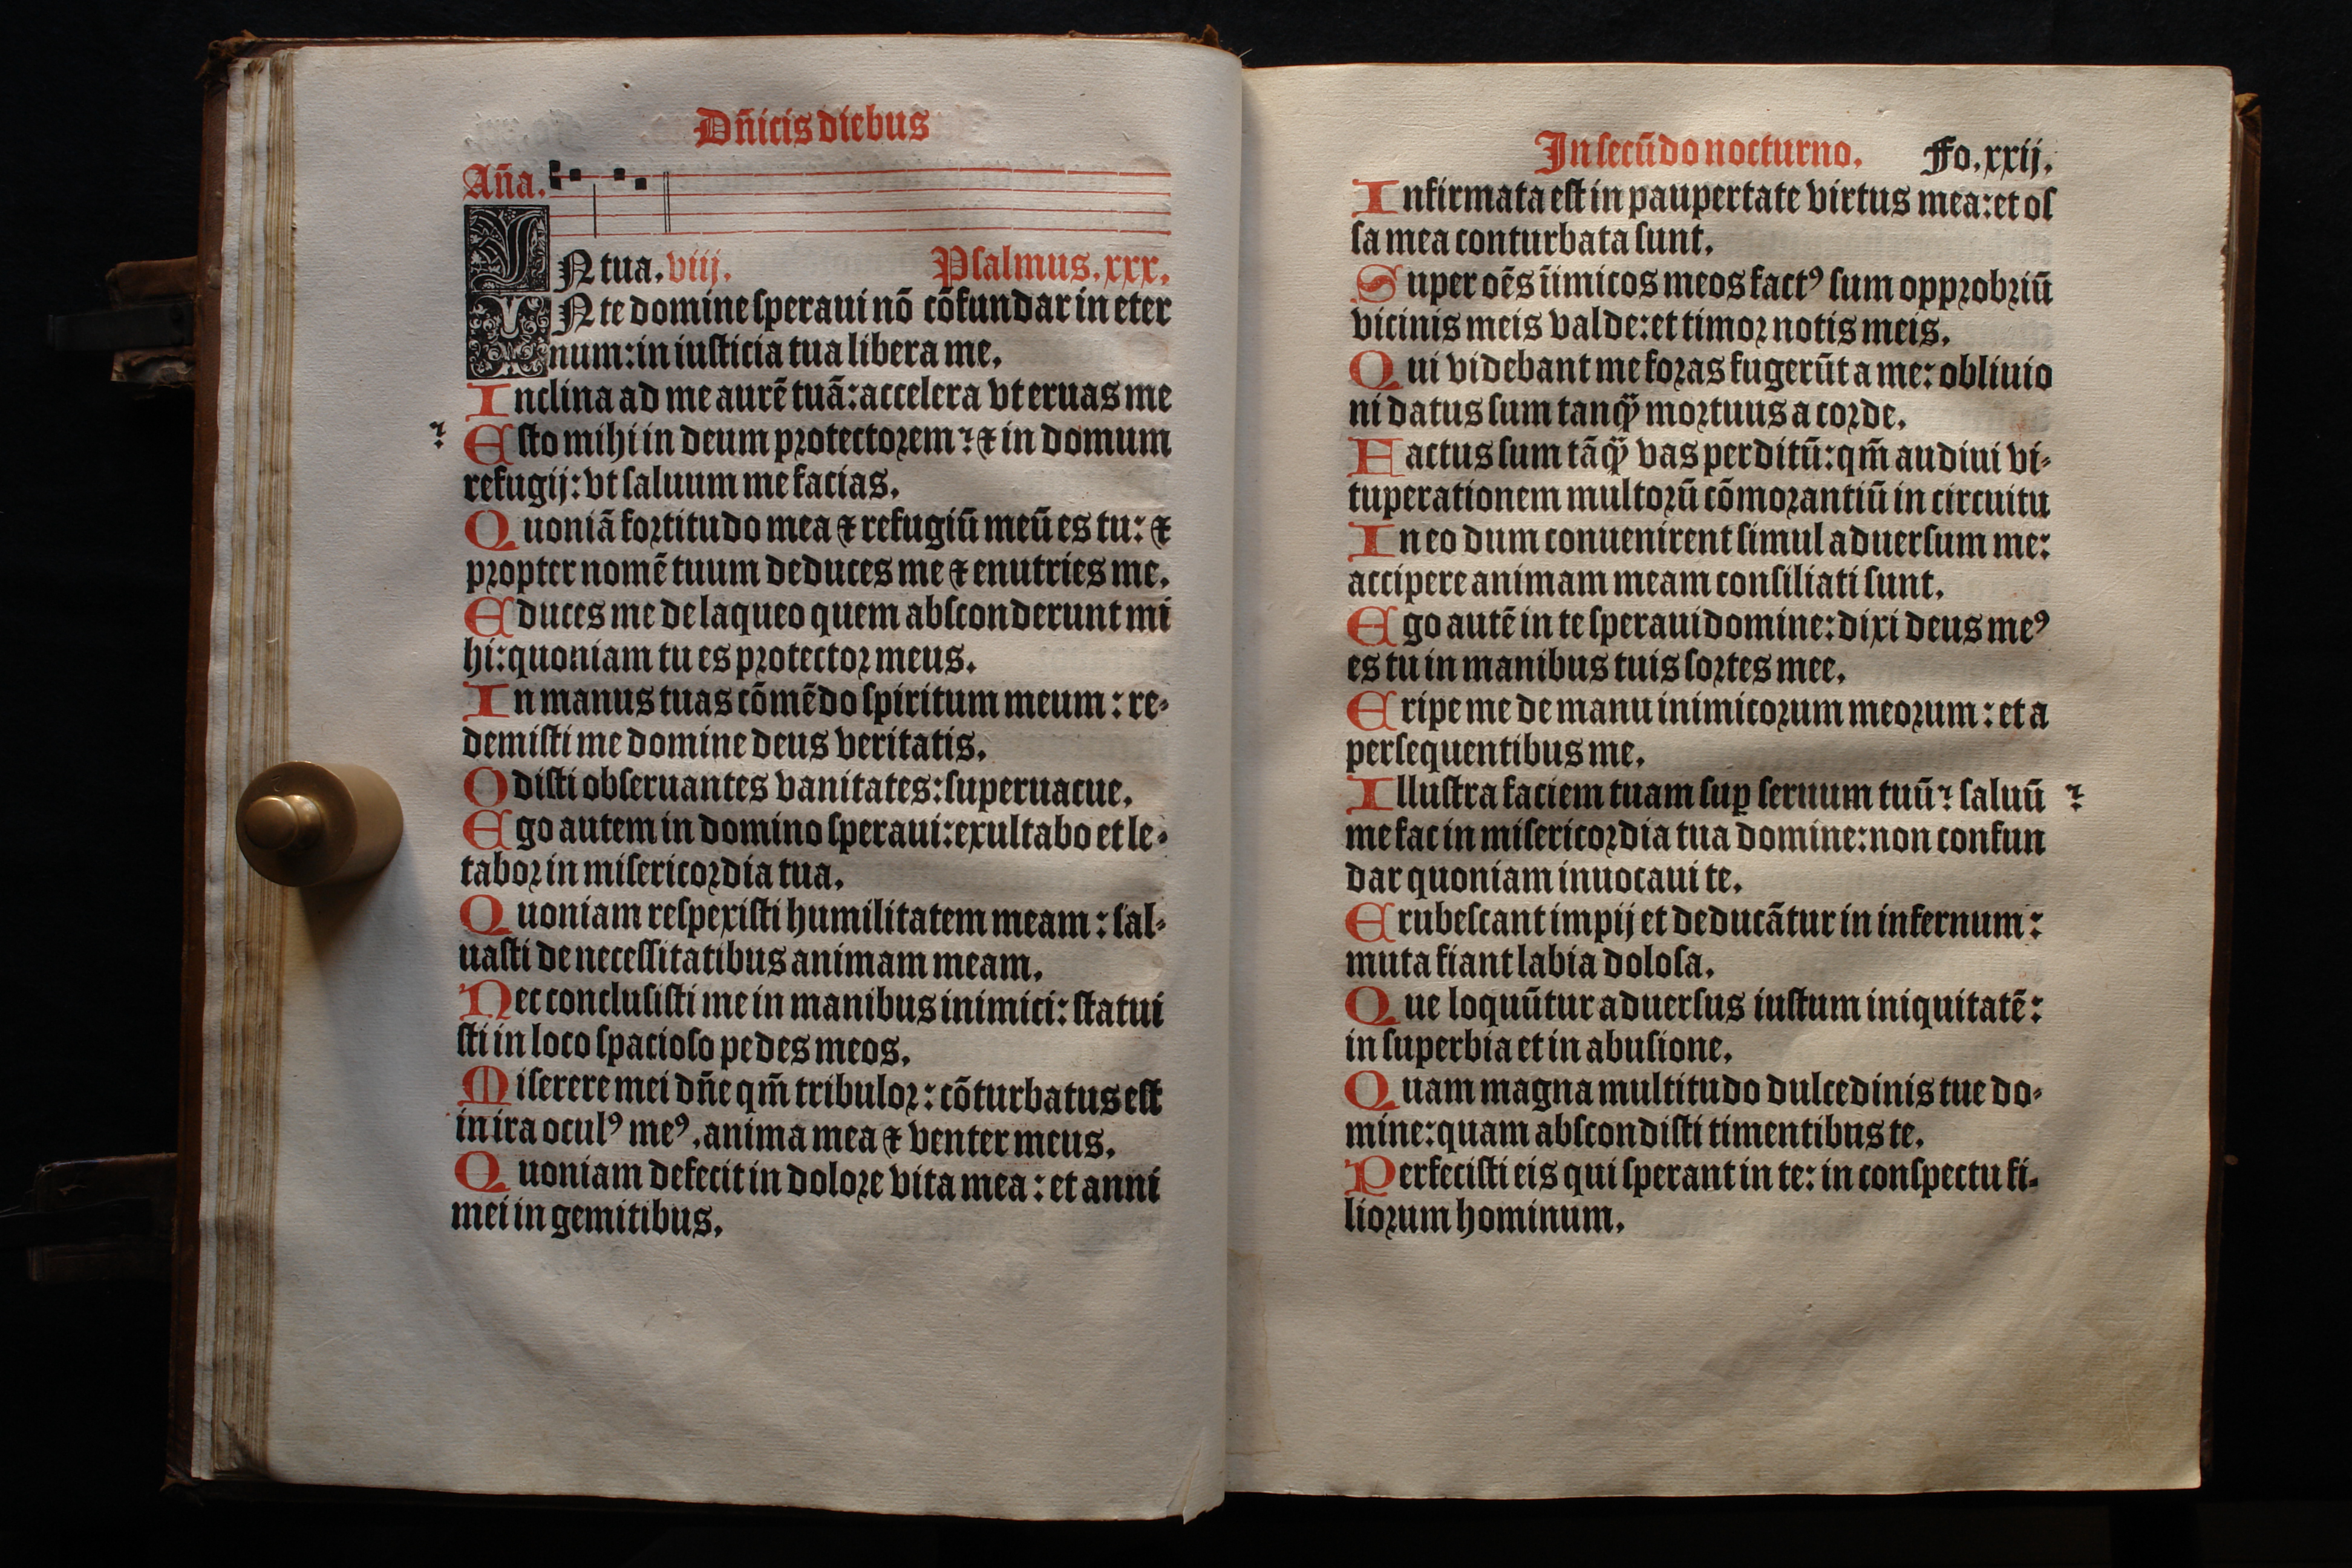 Dñicis diebus
Aña.
IN tua. viij. Psalmus. xxx.
IN te domine speraui nō cōfundar in eter
num: in iusticia tua libera me.
Inclina ad me aurē tuā: accelera vt eruas me
Esto mihi in deum protectorem ⁊ : ⁊ in domum
refugij: vt saluum me facias.
Quoniā fortitudo mea ⁊ refugiū meū es tu: ⁊
propter nomē tuum deduces me ⁊ enutries me.
Educes me de laqueo quem absconderunt mi
hi: quoniam tu es protector meus.
In manus tuas cōmēdo spiritum meum: re-
demisti me domine deus veritatis.
Odisti obseruantes vanitates: superuacue.
Ego autem in domino speraui: exultabo et le-
tabor in misericordia tua.
Quoniam respexisti humilitatem meam: sal-
uasti de necessitatibus animam meam.
Nec conclusisti me in manibus inimici: statui
sti in loco spacioso pedes meos.
Miserere mei dñe qm̄ tribulor: cōturbatus est
in ira oculꝰ meꝰ, anima mea ⁊ venter meus.
Quoniam defecit in dolore vita mea: et anni
mei in gemitibus.
In secūdo nocturno. Fo. xxij.
Infirmata est in paupertate virtus mea: et os
sa mea conturbata sunt.
Super oēs iīmicos meos factꝰ sum opprobriū
vicinis meis valde: et timor notis meis.
Qui videbant me foras fugerūt a me: obliuio
ni datus sum tanqꝫ mortuus a corde.
Factus sum tāqꝫ vas perditū: qm̄ audiui vi-
tuperationem multorū cōmorantiū in circuitu
In eo dum conuenirent simul aduersum me:
accipere animam meam consiliati sunt.
Ego autē in te speraui domine: dixi deus meꝰ
es tu in manibus tuis sortes mee.
Eripe me de manu inimicorum meorum: et a
persequentibus me.
Illustra faciem tuam suꝑ seruum tuū ⁊ : saluū
me fac in misericordia tua domine: non confun
dar quoniam inuocaui te.
Erubescant impij et deducātur in infernum:
muta fiant labia dolosa.
Que loquūtur aduersus iustum iniquitatē:
in superbia et in abusione.
Quam magna multitudo dulcedinis tue do-
mine: quam abscondisti timentibus te.
Perfecisti eis qui sperant in te: in conspectu fi-
liorum hominum.